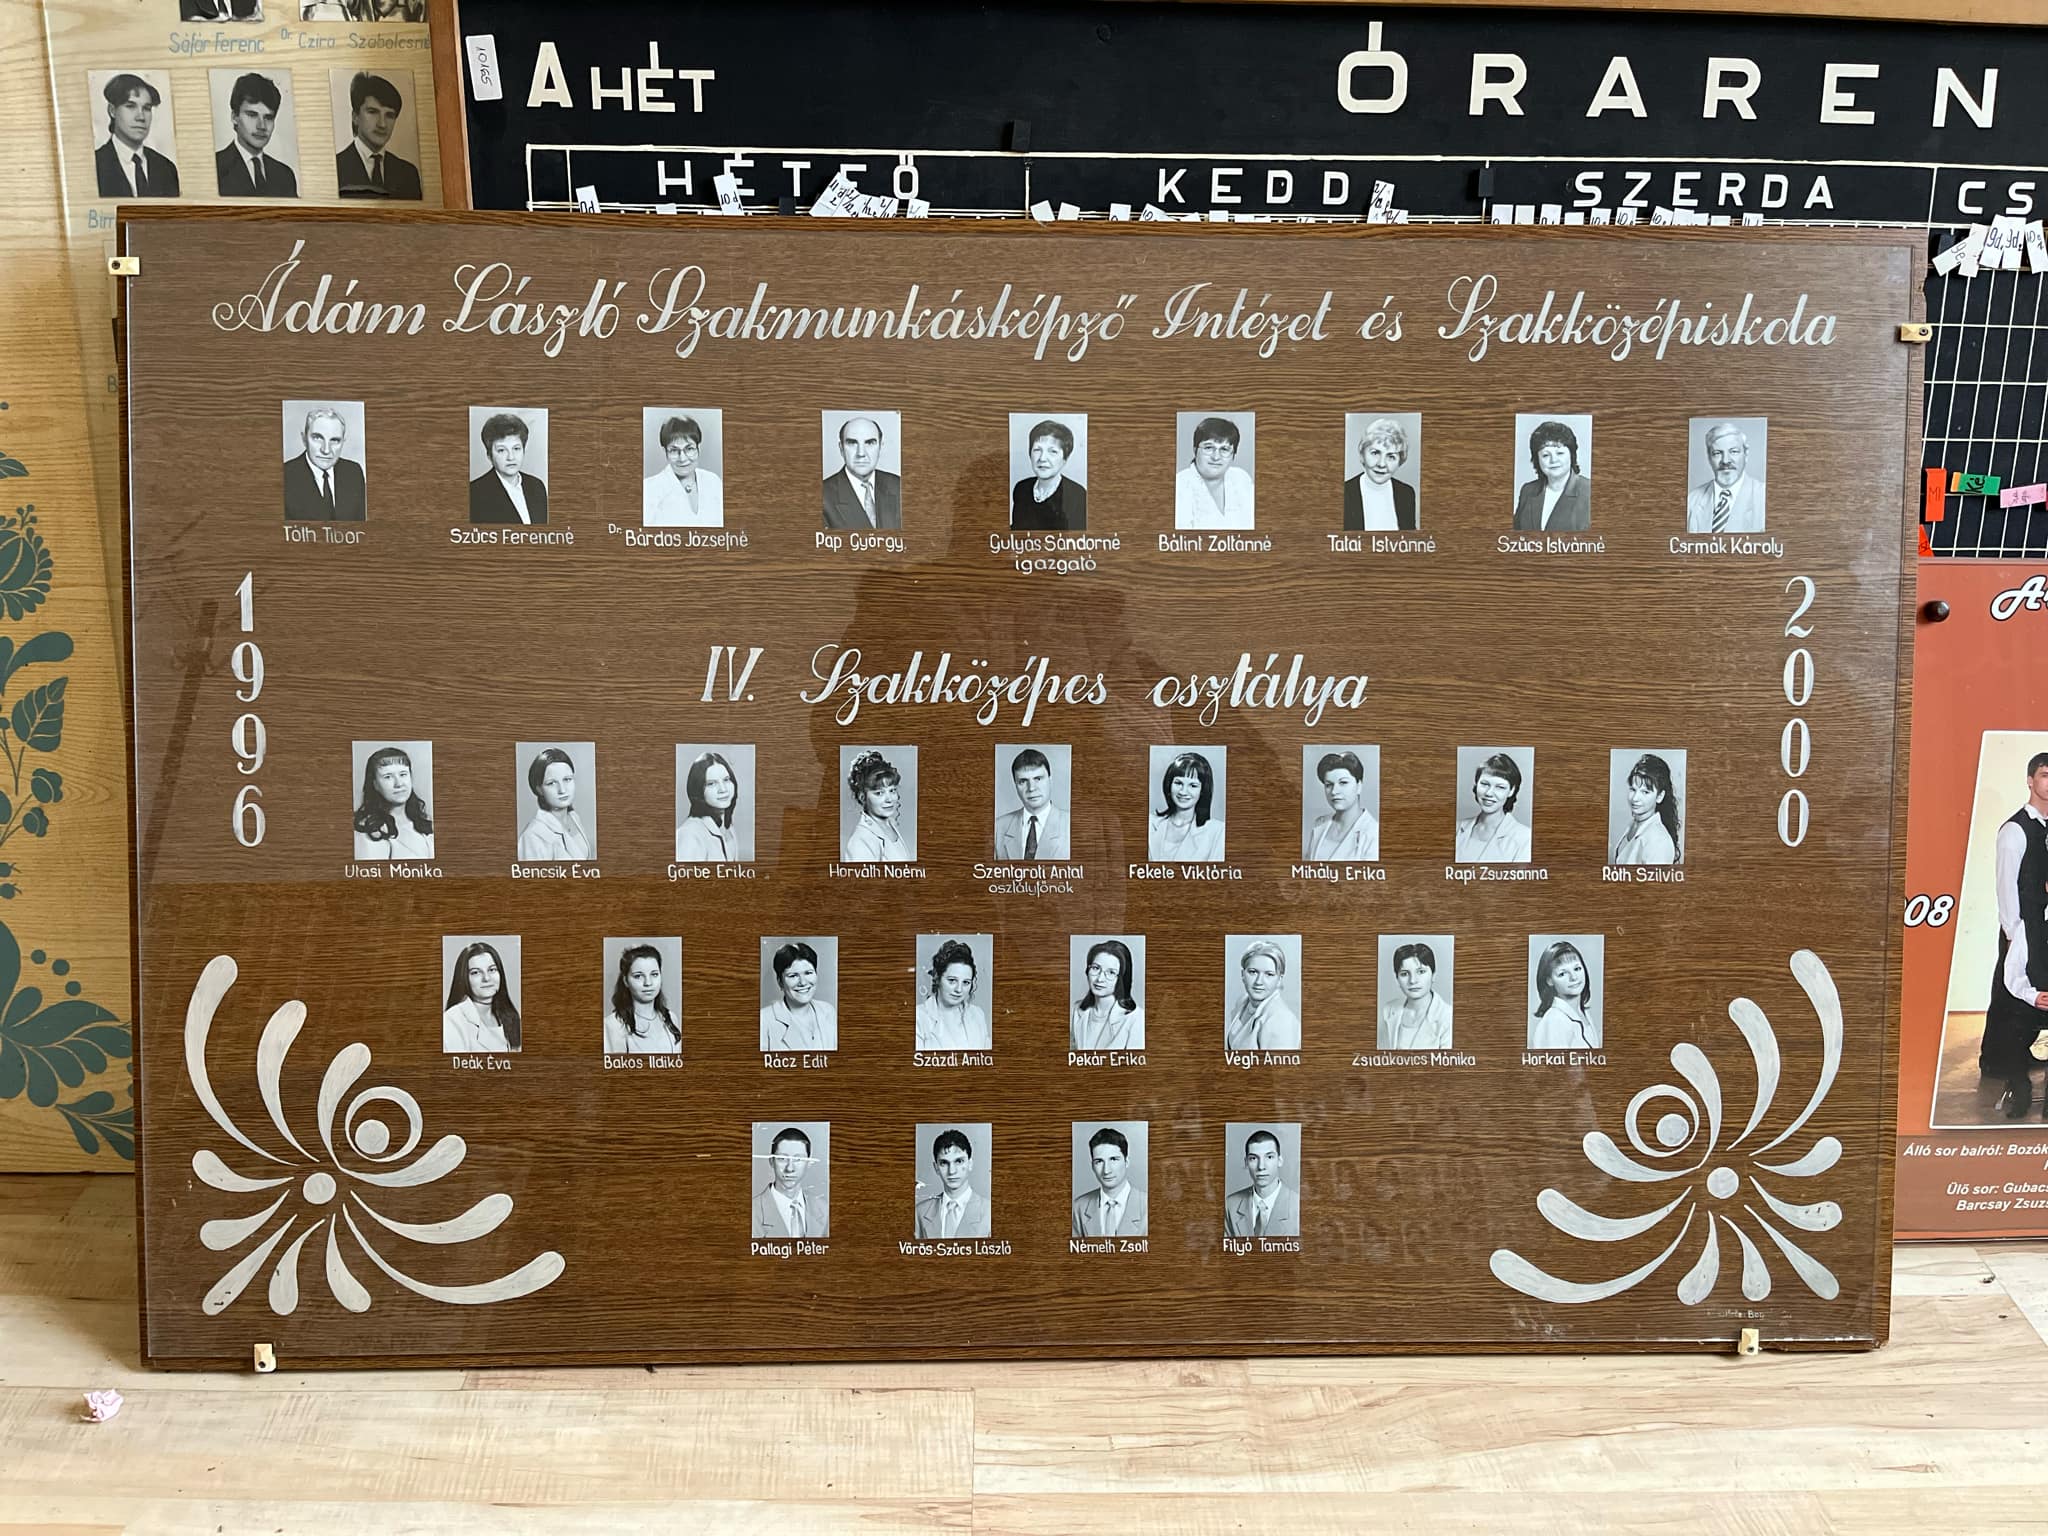 Sáfár Ferenc
Dr. Czira Szabolcsné
10165
A HÉT
ÓRAREN
HÉTFŐ KEDD SZERDA CS
Ádám László Szakmunkásképző Intézet és Szakközépiskola
Tóth Tibor
Szűcs Ferencné
Dr. Bárdos Józsefné
Pap György.
Gulyás Sándorné
igazgató
Bálint Zoltánné
Tatai Istvánné
Szűcs Istvánné
Csrmák Károly
1996
2000
IV. Szakközépes osztálya
Utasi Mónika
Bencsik Éva
Görbe Erika
Horváth Noémi
Szentgróti Antal
osztályfőnök
Fekete Viktória
Mihály Erika
Rapi Zsuzsanna
Róth Szilvia
Deák Éva
Bakos Ildikó
Rácz Edit
Százdi Anita
Pekár Erika
Végh Anna
Zsigákovics Mónika
Horkai Erika
Pallagi Péter
Vörös-Szűcs László
Németh Zsolt
Filyó Tamás
008
Álló sor balról: Bozók
Ülő sor: Gubacs
Barcsay Zsuzs